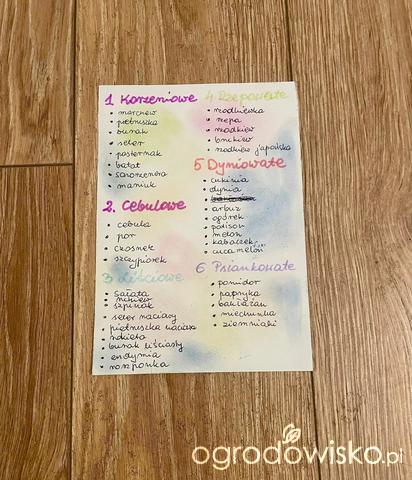 1 Korzeniowe
• marchew
• pietruszka
• burak
• seler
• pasternak
• batat
• skorzonera
• maniok
2. Cebulowe
• cebula
• por
• czosnek
• szczypiorek
3 Liściowe
• sałata
• szpinak
• seler naciowy
• pietruszka naciowa
• rokieta
• burak liściasty
• endywia
• roszponka
4 Rzepowate
• rzodkiewka
• rzepa
• rzodkiew
• brukiew
• rzodkiew japońska
5 Dyniowate
• cukinia
• dynia
• arbuz
• ogórek
• patison
• melon
• kabaczek
• cucamelon
6 Psiankowate
• pomidor
• papryka
• bakłażan
• miechunka
• ziemniaki
ogrodowisko.pl